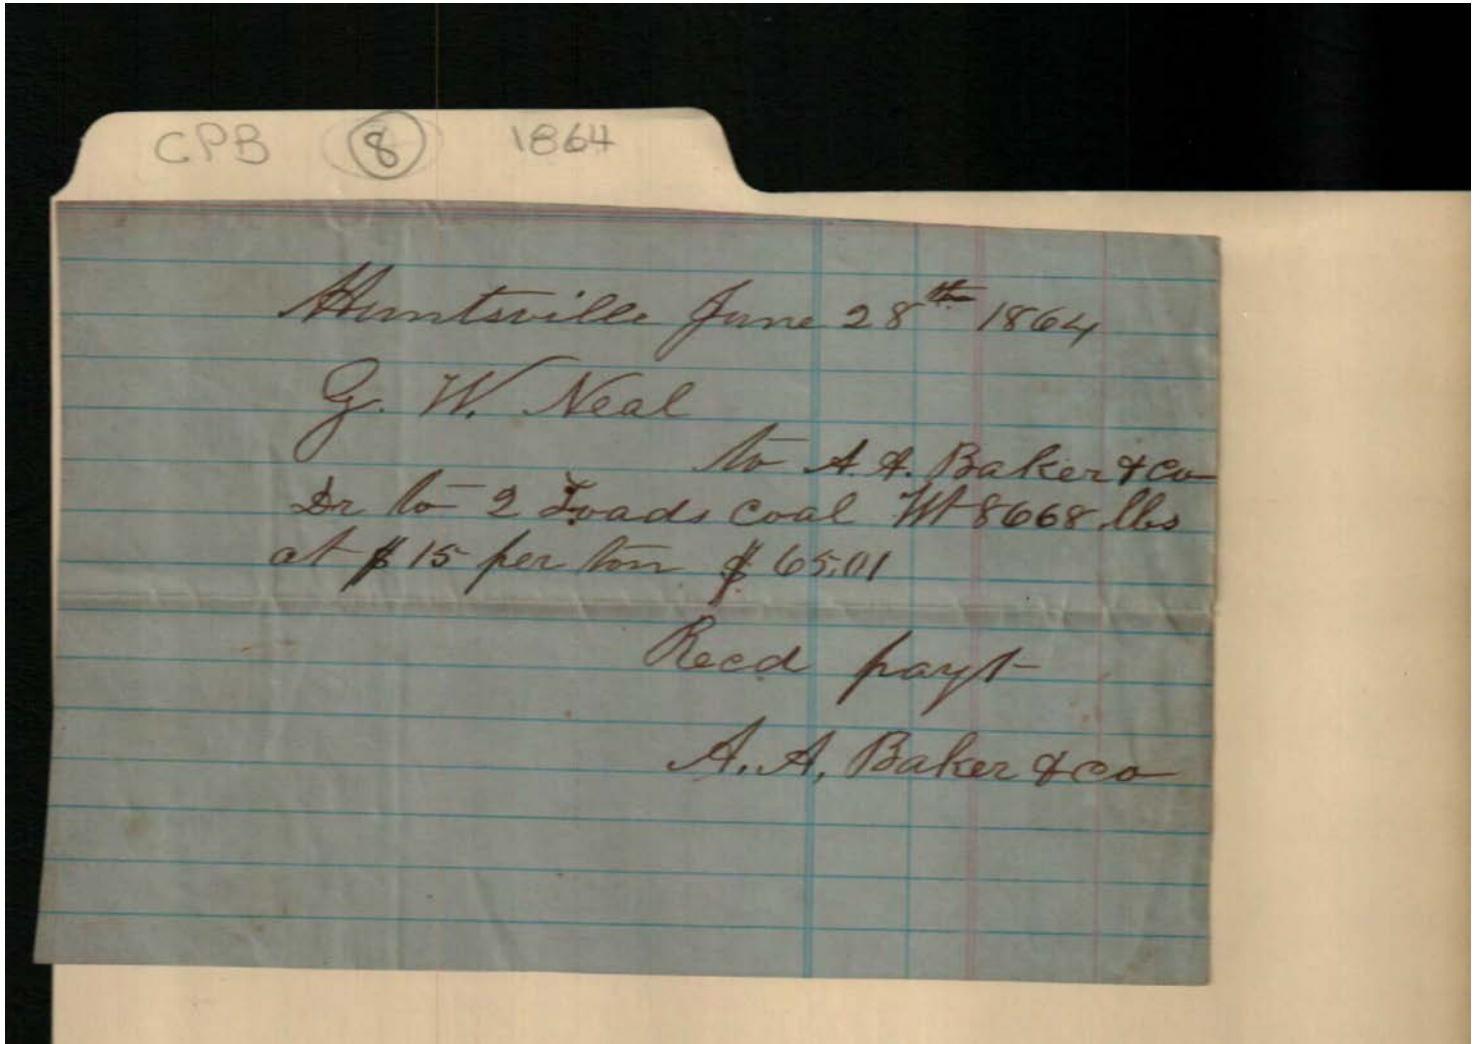 CPB 8 1864
Huntsville June 28th 1864
G. W. Neal
to A. A. Baker & co
Dr to 2 Loads coal Wt 8668 lbs
at $15 per ton $65.01
Recd payt
A. A. Baker & co